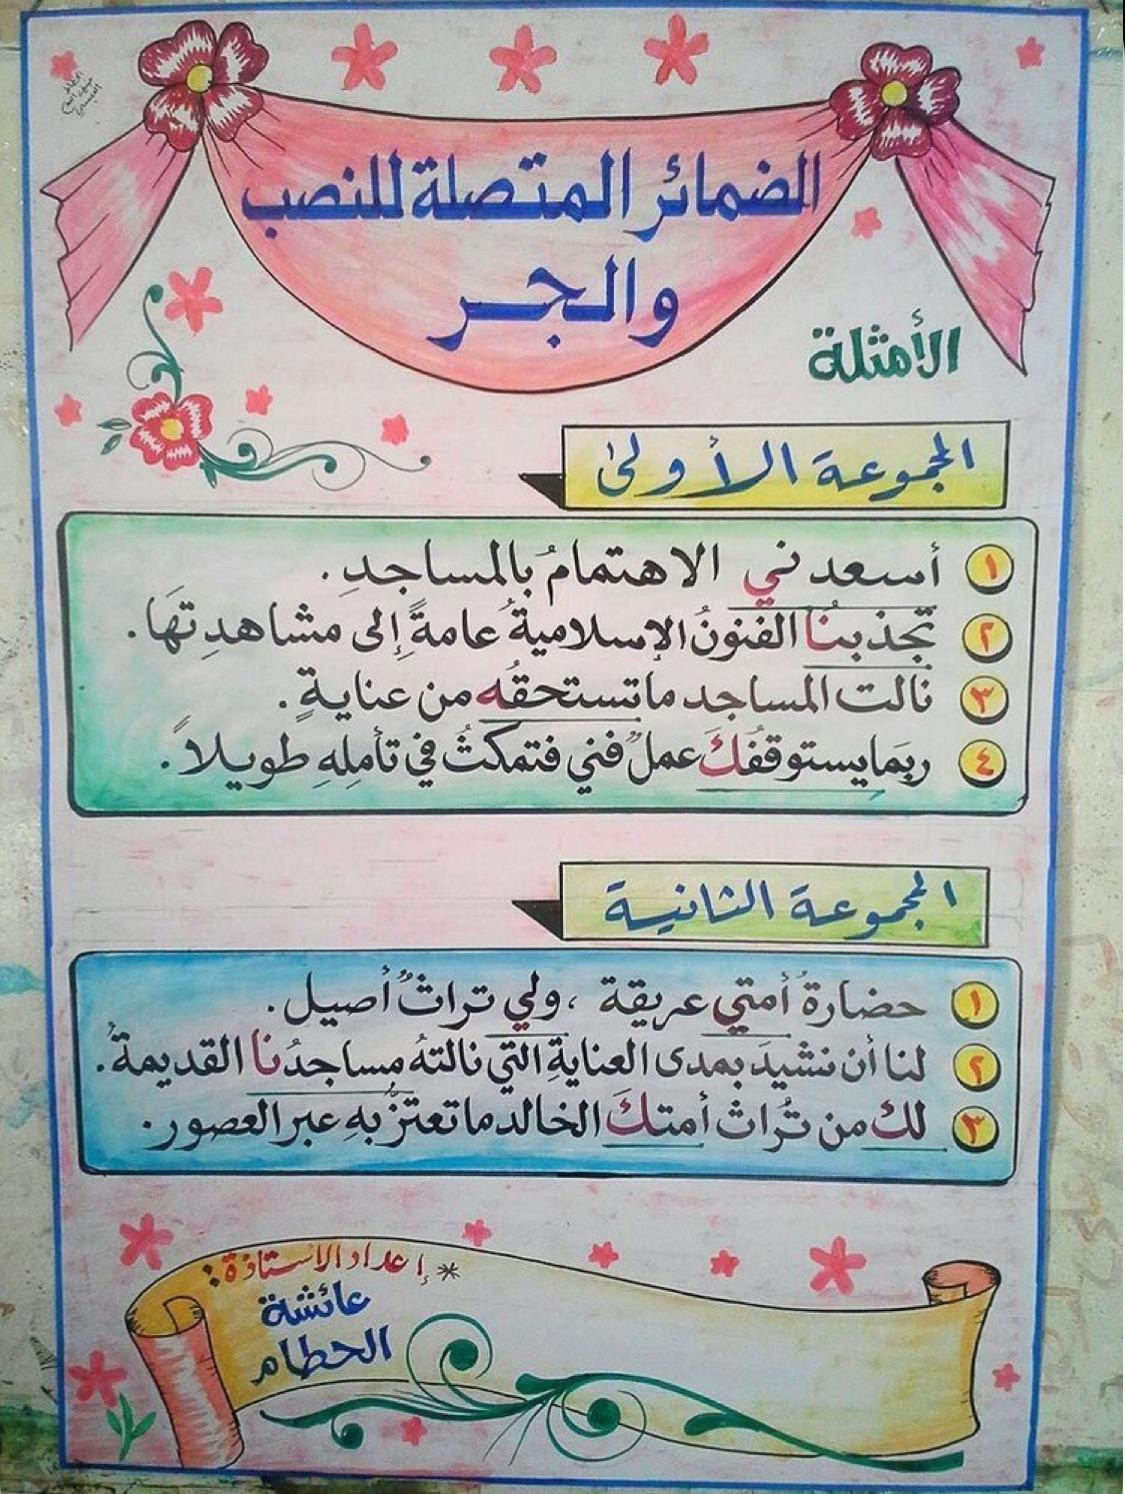 الضمائر المتصلة للنصب
والجر
الأمثلة
المجموعة الأولى
١ أسعدني الاهتمامُ بالمساجدِ.
٢ تجذبنُا الفنونُ الإسلاميةُ عامةً إلى مشاهدِتهَا.
٣ نالت المساجد ماتستحقُه من عنايةٍ.
٤ ربمَا يستوقفُكَ عملٌ فني فتمكثُ في تأملِهِ طويلاً.
المجموعة الثانية
١ حضارةُ أمتي عريقة، ولي تراثٌ أصيل.
٢ لنا أن نشيدَ بمدى العنايةِ التي نالتهُ مساجدُنا القديمةُ.
٣ لك من تُراث أمتكَ الخالد ما تعتزُّ بهِ عبر العصور.
* إعداد الاستاذة:
عائشة
الحطام